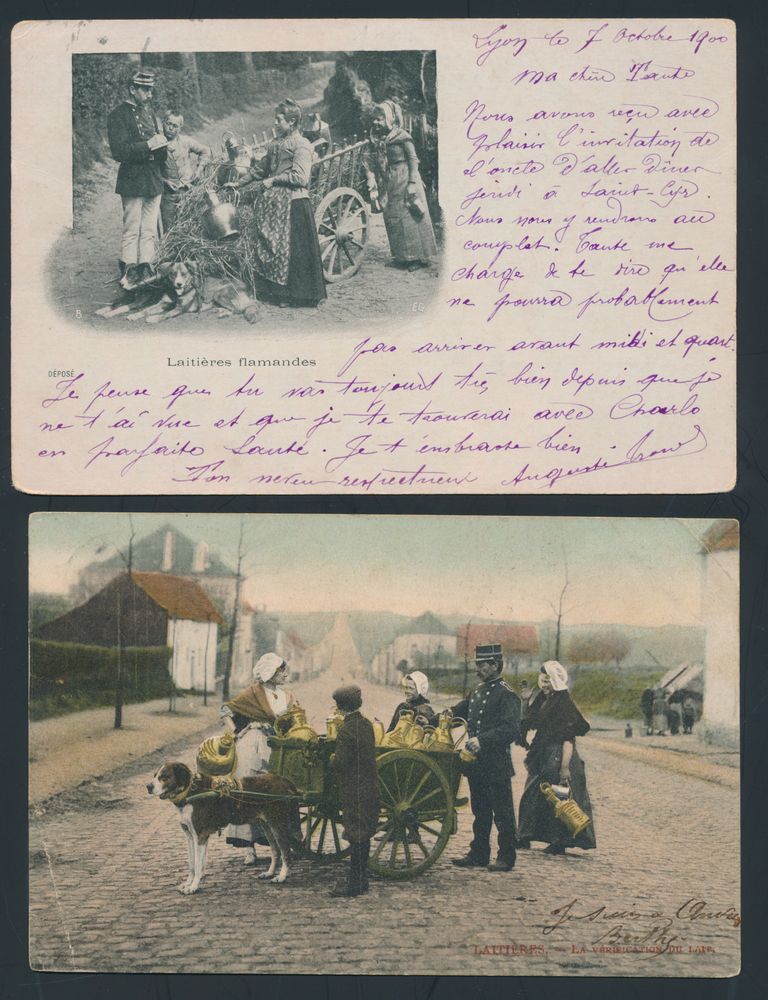 Lyon le 7 Octobre 1900
Ma chère Tante
Nous avons reçu avec
plaisir l'invitation de
l'oncle d'aller dîner
jeudi à Saint-Cyr.
Nous nous y rendrons au
complet. Tante me
charge de te dire qu'elle
ne pourra probablement
pas arriver avant midi et quart.
B.
EG
Laitières flamandes
DÉPOSÉ
Je pense que tu vas toujours très bien depuis que je
ne t'ai vue et que je te trouverai avec Charlo
en parfaite santé. Je t'embrasse bien
Ton neveu respectueux Auguste
Je suis a
LAITIÈRES. — LA VÉRIFICATION DU LAIT.